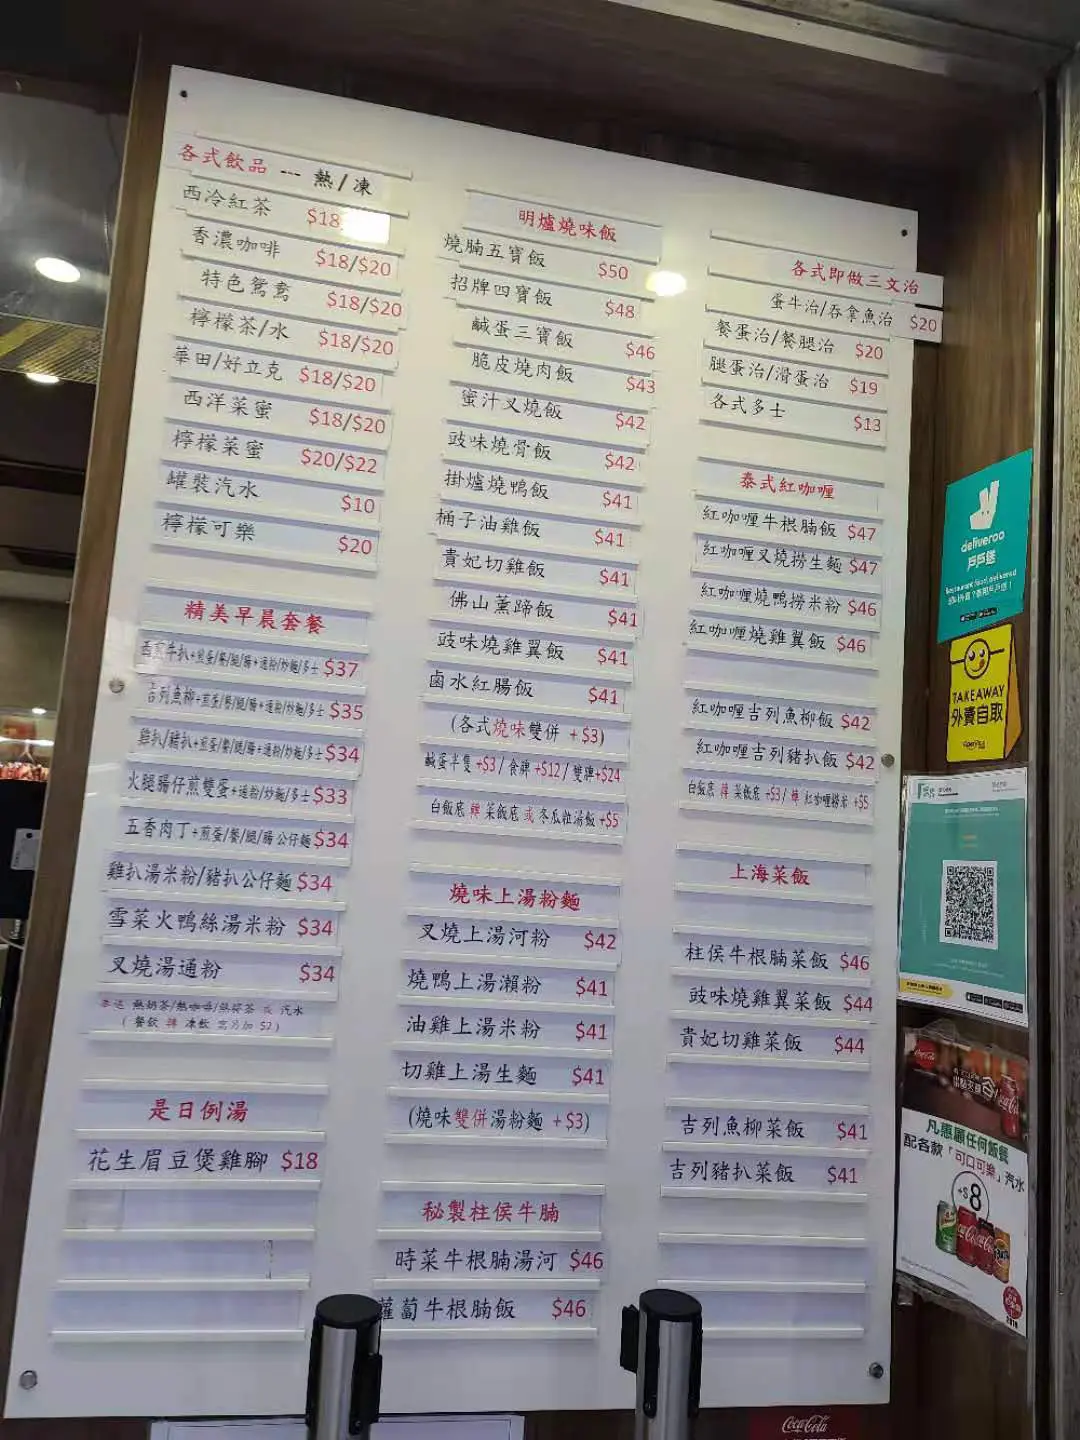 各式飲品 --- 熱/凍
西冷紅茶 $18
香濃咖啡 $18/$20
特色鴛鴦 $18/$20
檸檬茶/水 $18/$20
華田/好立克 $18/$20
西洋菜蜜 $18/$20
檸檬菜蜜 $20/$22
罐裝汽水 $10
檸檬可樂 $20
精美早晨套餐
西煎牛扒+煎蛋/餐/腿/腸+通粉/炒麵/多士 $37
吉列魚柳+煎蛋/餐/腿/腸+通粉/炒麵/多士 $35
雞扒/豬扒+煎蛋/餐/腿/腸+通粉/炒麵/多士 $34
火腿腸仔煎雙蛋+通粉/炒麵/多士 $33
五香肉丁+煎蛋/餐/腿/腸 公仔麵 $34
雞扒湯米粉/豬扒公仔麵 $34
雪菜火鴨絲湯米粉 $34
叉燒湯通粉 $34
熱奶茶/熱咖啡/熱檸茶 或 汽水
(餐飲 轉 凍飲 需另加 $2)
是日例湯
花生眉豆煲雞腳 $18
明爐燒味飯
燒腩五寶飯 $50
招牌四寶飯 $48
鹹蛋三寶飯 $46
脆皮燒肉飯 $43
蜜汁叉燒飯 $42
豉味燒骨飯 $42
掛爐燒鴨飯 $41
桶子油雞飯 $41
貴妃切雞飯 $41
佛山薰蹄飯 $41
豉味燒雞翼飯 $41
鹵水紅腸飯 $41
(各式燒味雙併 + $3)
鹹蛋半隻 +$3 / 食髀 +$12 / 雙髀+$24
白飯底 轉 菜飯底 或 冬瓜粒湯飯 +$5
燒味上湯粉麵
叉燒上湯河粉 $42
燒鴨上湯瀨粉 $41
油雞上湯米粉 $41
切雞上湯生麵 $41
(燒味雙併湯粉麵 + $3)
秘製柱侯牛腩
時菜牛根腩湯河 $46
蘿蔔牛根腩飯 $46
各式即做三文治
蛋牛治/吞拿魚治 $20
餐蛋治/餐腿治 $20
腿蛋治/滑蛋治 $19
各式多士 $13
泰式紅咖喱
紅咖喱牛根腩飯 $47
紅咖喱叉燒撈生麵 $47
紅咖喱燒鴨撈米粉 $46
紅咖喱燒雞翼飯 $46
紅咖喱吉列魚柳飯 $42
紅咖喱吉列豬扒飯 $42
白飯底 轉 菜飯底 +$3/ 轉 紅咖喱撈米 +$5
上海菜飯
柱侯牛根腩菜飯 $46
豉味燒雞翼菜飯 $44
貴妃切雞菜飯 $44
吉列魚柳菜飯 $41
吉列豬扒菜飯 $41
deliveroo
戶戶送
Restaurant food, delivered
TAKEAWAY
外賣自取
Coca-Cola
凡惠顧任何飯餐
配各款「可口可樂」汽水
+$8
Coca-Cola